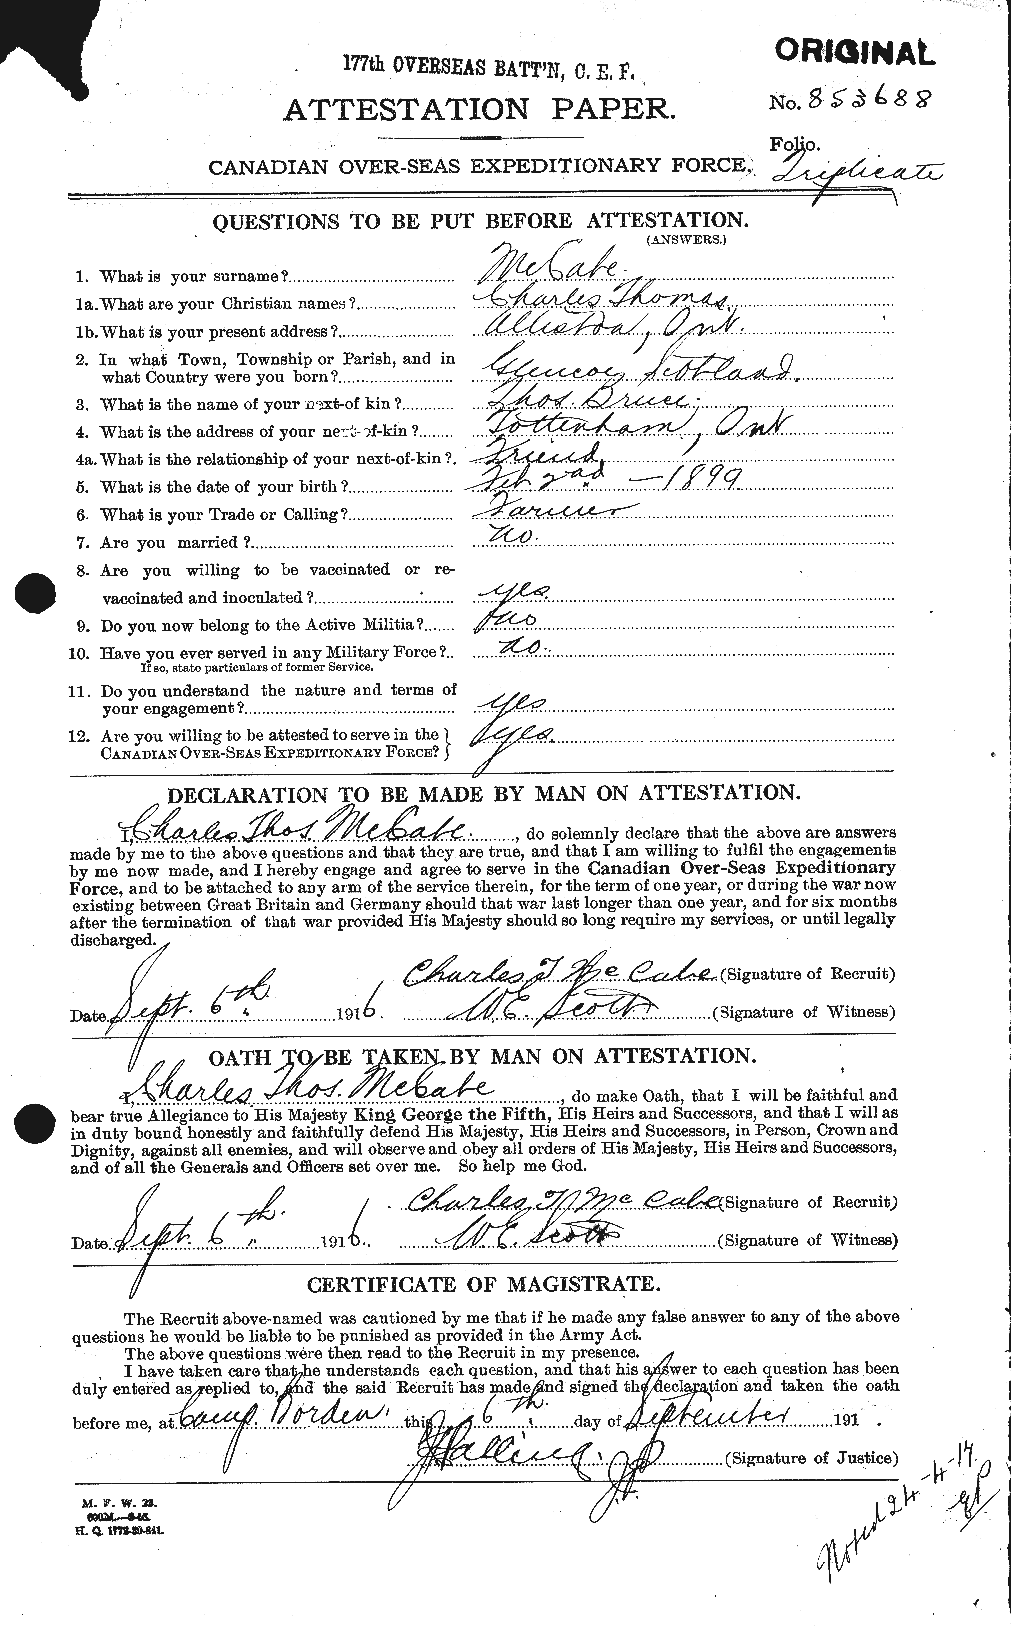 ORIGINAL
177th OVERSEAS BATT'N, C. E. F.
No. 853688
ATTESTATION PAPER.
Folio.
CANADIAN OVER-SEAS EXPEDITIONARY FORCE.
Triplicate
QUESTIONS TO BE PUT BEFORE ATTESTATION.
(ANSWERS.)
1. What is your surname? McCabe.
1a. What are your Christian names? Charles Thomas.
1b. What is your present address? Alliston, Ont.
2. In what Town, Township or Parish, and in
what Country were you born? Glencoe, Scotland.
3. What is the name of your next-of kin? Thos. Bruce.
4. What is the address of your next-of-kin? Tottenham, Ont
4a. What is the relationship of your next-of-kin? Friend
5. What is the date of your birth? Feb 2nd — 1899
6. What is your Trade or Calling? Farmer
7. Are you married? no.
8. Are you willing to be vaccinated or re-
vaccinated and inoculated? yes.
9. Do you now belong to the Active Militia? no
10. Have you ever served in any Military Force? no.
If so, state particulars of former Service.
11. Do you understand the nature and terms of
your engagement? yes
12. Are you willing to be attested to serve in the
CANADIAN OVER-SEAS EXPEDITIONARY FORCE? yes.
DECLARATION TO BE MADE BY MAN ON ATTESTATION.
I, Charles Thos. McCabe, do solemnly declare that the above are answers
made by me to the above questions and that they are true, and that I am willing to fulfil the engagements
by me now made, and I hereby engage and agree to serve in the Canadian Over-Seas Expeditionary
Force, and to be attached to any arm of the service therein, for the term of one year, or during the war now
existing between Great Britain and Germany should that war last longer than one year, and for six months
after the termination of that war provided His Majesty should so long require my services, or until legally
discharged.
Charles T McCabe (Signature of Recruit)
Date Sept. 6th. 1916 W.E. Scott (Signature of Witness)
OATH TO BE TAKEN BY MAN ON ATTESTATION.
I, Charles Thos. McCabe, do make Oath, that I will be faithful and
bear true Allegiance to His Majesty King George the Fifth, His Heirs and Successors, and that I will as
in duty bound honestly and faithfully defend His Majesty, His Heirs and Successors, in Person, Crown and
Dignity, against all enemies, and will observe and obey all orders of His Majesty, His Heirs and Successors,
and of all the Generals and Officers set over me. So help me God.
Charles T McCabe (Signature of Recruit)
Date Sept. 6th. 1916. W.E. Scott (Signature of Witness)
CERTIFICATE OF MAGISTRATE.
The Recruit above-named was cautioned by me that if he made any false answer to any of the above
questions he would be liable to be punished as provided in the Army Act.
The above questions were then read to the Recruit in my presence.
I have taken care that he understands each question, and that his answer to each question has been
duly entered as replied to, and the said Recruit has made and signed the declaration and taken the oath
before me, at Camp Borden. this 6th. day of September 191 .
J.P. (Signature of Justice)
M. F. W. 23.
H. Q. 1772-39-841.
Noted 24-4-17.